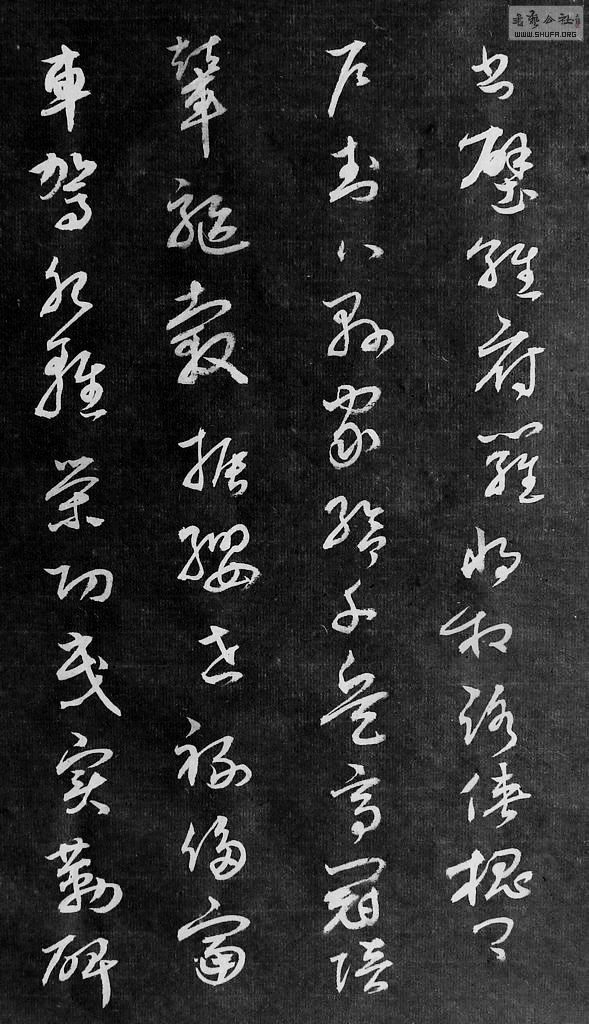 書壁經府羅將相路俠槐卿
戶封八縣家給千兵高冠陪
輦驅轂振纓世祿侈富
車駕肥輕策功茂實勒碑
書藝公社
WWW.SHUFA.ORG